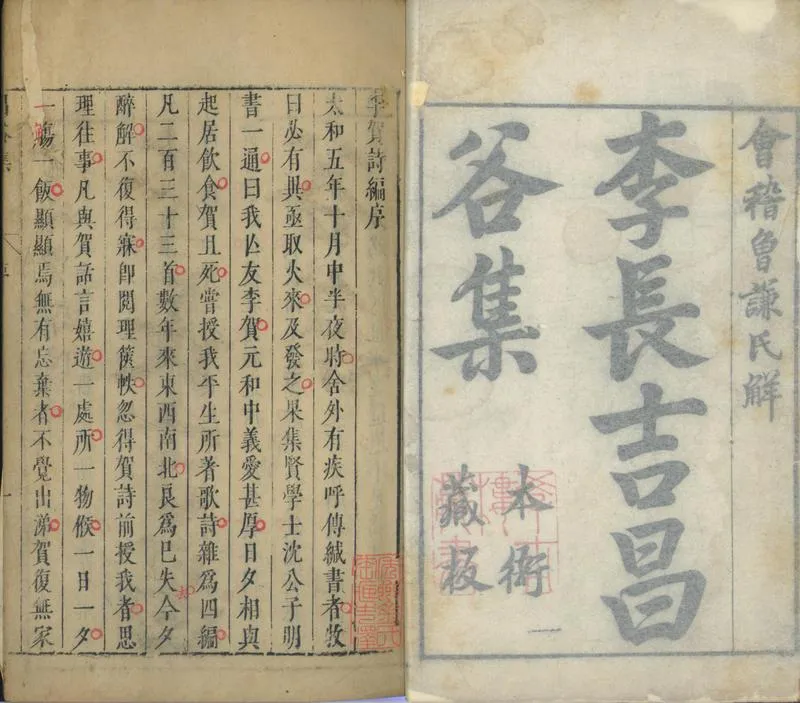 會稽曾謙氏解
李長吉昌
谷集
本衙
藏板
李賀詩編序
太和五年十月中半夜時舍外有疾呼傳緘書者牧
曰必有異亟取火來及發之果集賢學士沈公子明
書一通曰我亾友李賀元和中義愛甚厚日夕相與
起居飲食賀且死嘗授我平生所著歌詩雜爲四編
凡二百三十三首數年來東西南北良爲已失今夕
醉解不復得寐即閱理篋帙忽得賀詩前授我者思
理往事凡與賀話言嬉遊一處所一物候一日一夕
一觴一飯顯顯焉無有忘棄者不覺出涕賀復無家